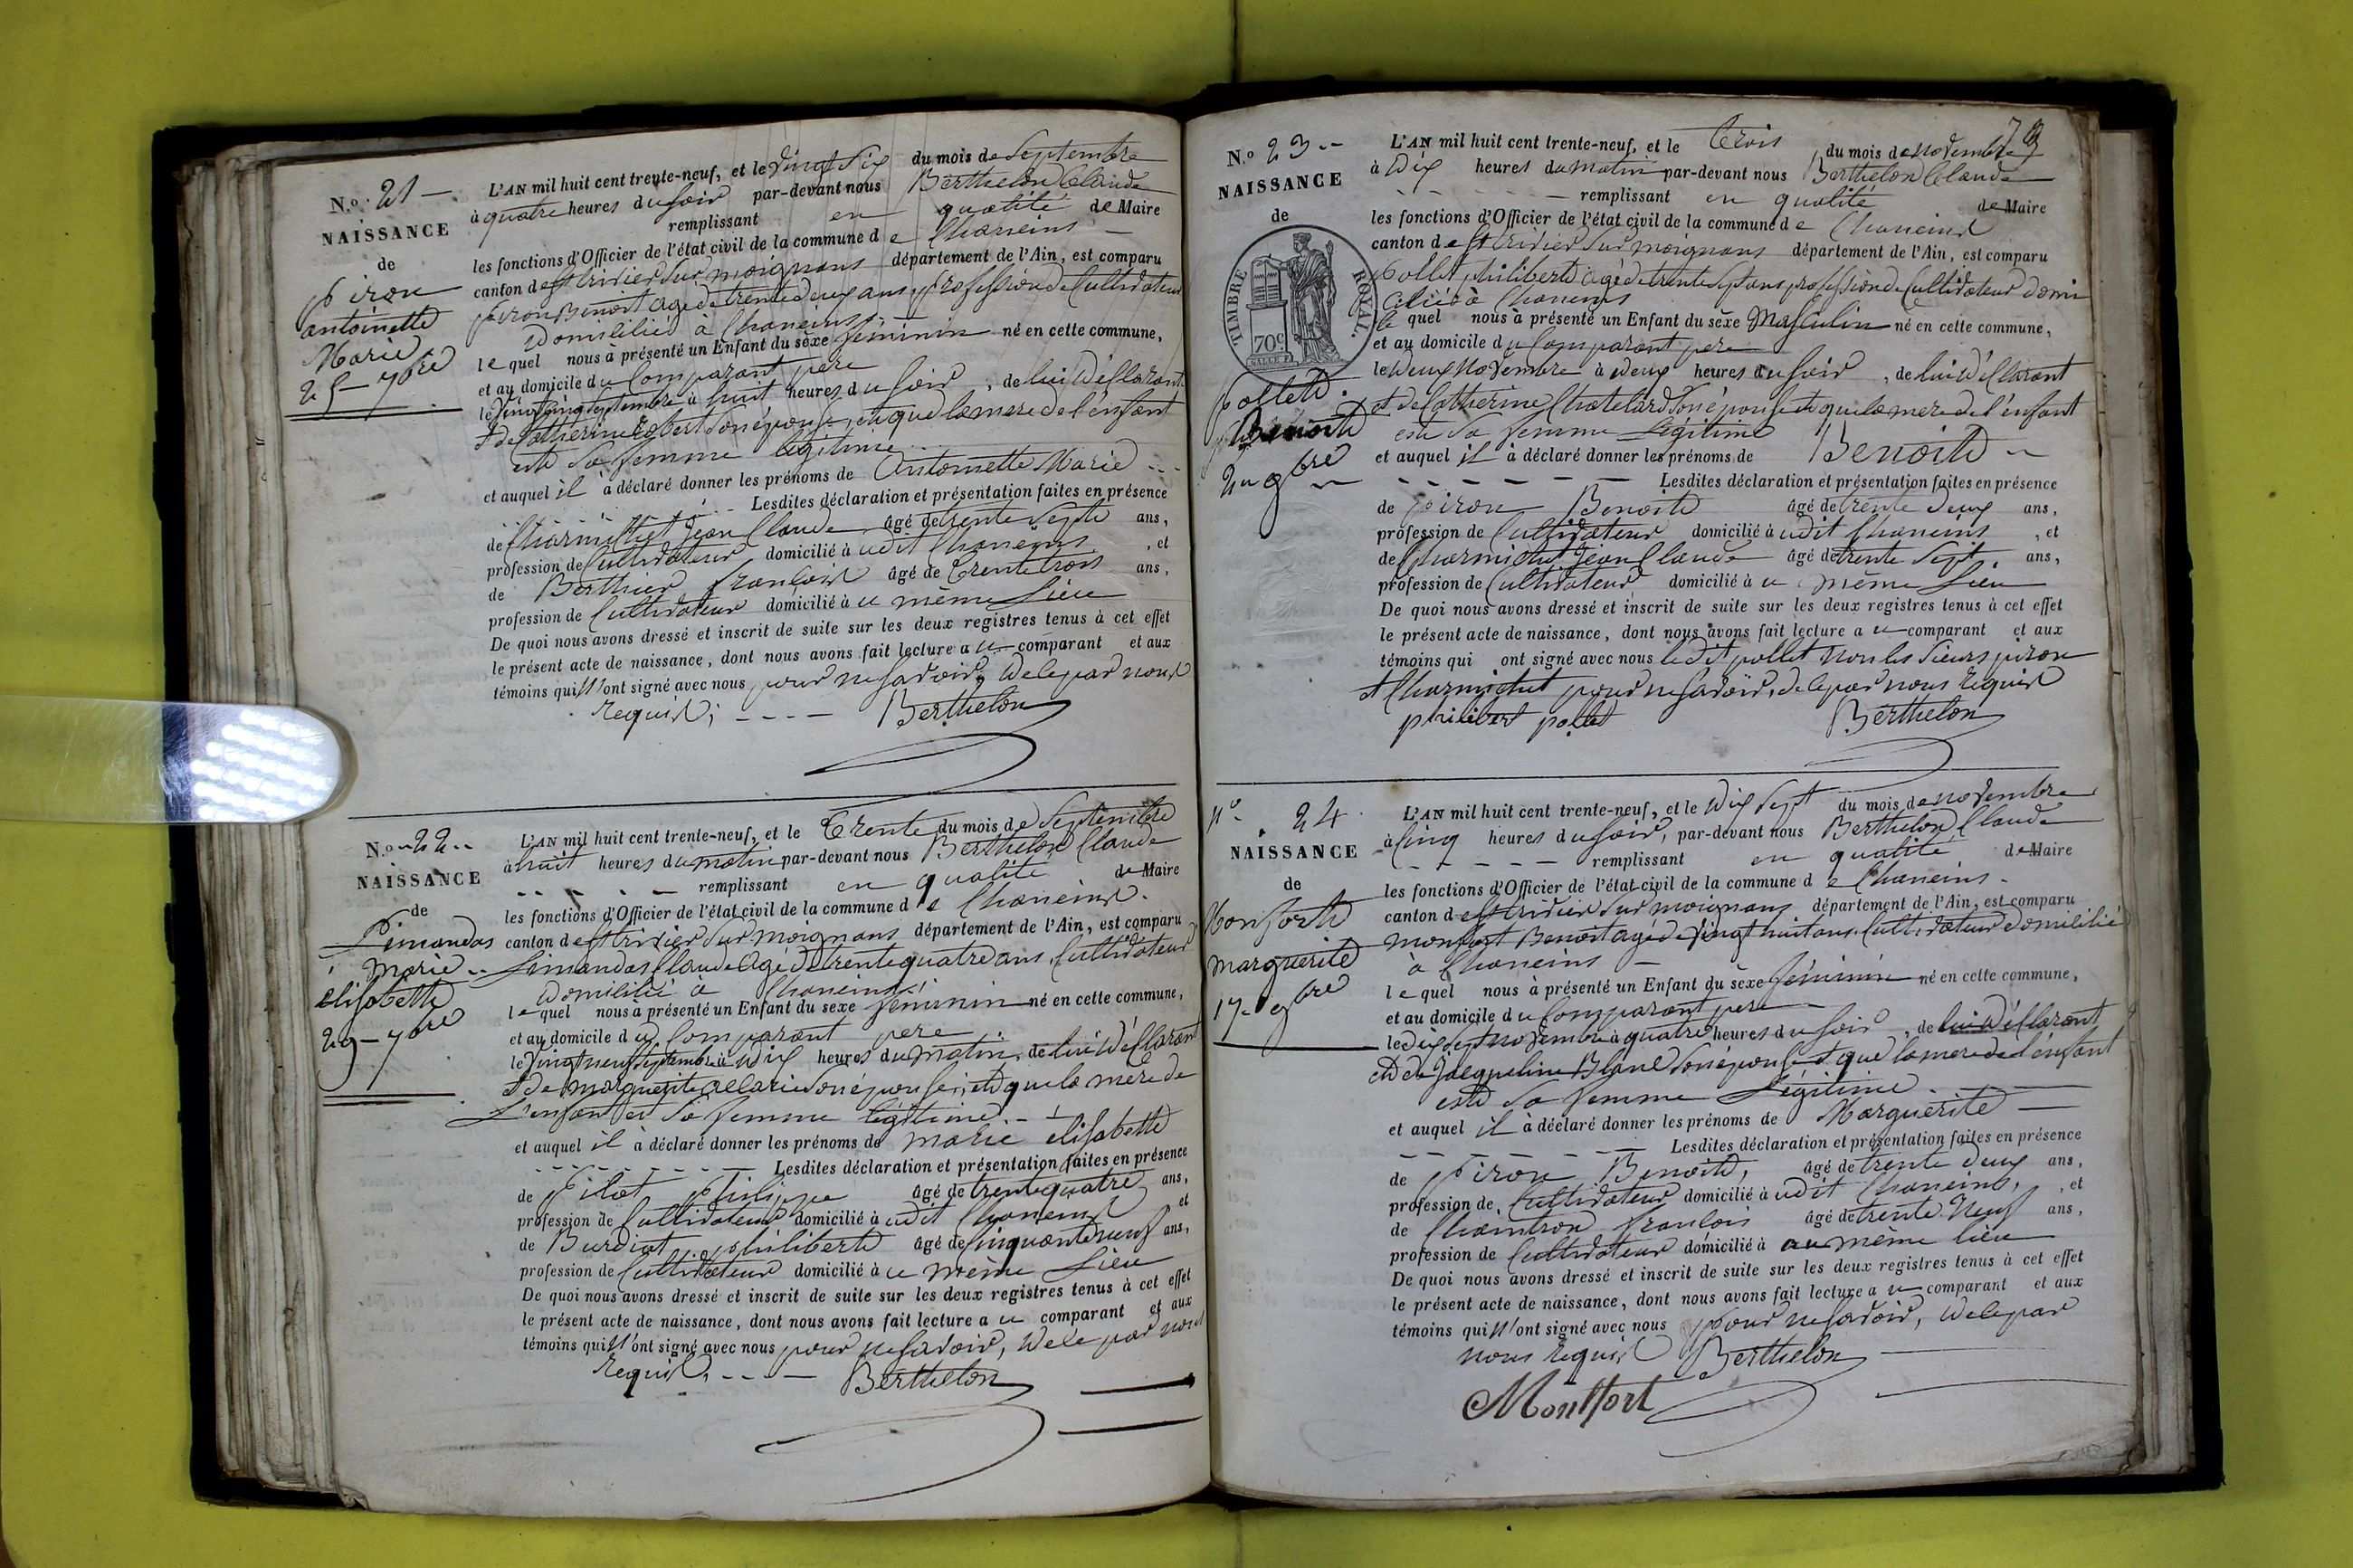 N.o 21
NAISSANCE
de
piron
antoinette
Marie
25 7bre
L'AN mil huit cent trente-neuf, et le vingt six du mois de Septembre
à quatre heures du soir par-devant nous Berthelon Claude
remplissant en qualité de Maire
les fonctions d'Officier de l'état civil de la commune de Chaneins
canton de st trivier sur moignans département de l'Ain, est comparu
piron Benoit agé de trente deux ans profession de Cultivateur
domicilié à Chaneins
lequel nous à présenté un Enfant du sèxe féminin né en cette commune,
et au domicile du Comparant pere
le vingt cinq septembre à huit heures du soir, de lui Déclarant
et de Catherine Robert son épouse, et que la mere de l'enfant
est sa femme légitime
et auquel il à déclaré donner les prénoms de Antoinette Marie
Lesdites déclaration et présentation faites en présence
de Charmichet Jean Claude âgé de trente Sept ans,
profession de Cultivateur domicilié à udit Chaneins, et
de Berthier françois âgé de trente trois ans,
profession de Cultivateur domicilié à u même Lieu
De quoi nous avons dressé et inscrit de suite sur les deux registres tenus à cet effet
le présent acte de naissance, dont nous avons fait lecture a u comparant et aux
témoins qui n'ont signé avec nous pour ne savoir, De le par nous
Requis; Berthelon
N.o 22
NAISSANCE
de
Limandas
Marie
élisabette
29 7bre
L'AN mil huit cent trente-neuf, et le Trente du mois de Septembre
à huit heures du matin par-devant nous Berthelon Claude
remplissant en qualité de Maire
les fonctions d'Officier de l'état civil de la commune de Chaneins
canton de st trivier sur moignans département de l'Ain, est comparu
Limandas Claude agé de trente quatre ans, Cultivateur
domicilié à Chaneins
lequel nous a présenté un Enfant du sexe féminin né en cette commune,
et au domicile du Comparant pere
le vingt neuf septembre à Dix heures du matin, de lui Déclarant
et de marguerite son épouse, et que la mere de
L'enfant est sa femme légitime
et auquel il à déclaré donner les prénoms de marie élisabette
Lesdites déclaration et présentation faites en présence
de Pilat philippe âgé de trente quatre ans,
profession de Cultivateur domicilié à udit Chaneins et
de Burdiat philibert âgé de Cinquante neuf ans,
profession de Cultivateur domicilié à u même Lieu
De quoi nous avons dressé et inscrit de suite sur les deux registres tenus à cet effet
le présent acte de naissance, dont nous avons fait lecture a u comparant et aux
témoins qui n'ont signé avec nous pour ne savoir, De le par nous
Requis, Berthelon
N.o 23
NAISSANCE
de
TIMBRE ROYAL
70c
pollet
Benoit
2 9bre
L'AN mil huit cent trente-neuf, et le Trois du mois de novembre
à Dix heures du matin par-devant nous Berthelon Claude
remplissant en qualité de Maire
les fonctions d'Officier de l'état civil de la commune de Chaneins
canton de st trivier sur moignans département de l'Ain, est comparu
pollet philibert agé de trente sept ans profession de Cultivateur domi
cilié à Chaneins
le quel nous à présenté un Enfant du sèxe Masculin né en cette commune,
et au domicile du Comparant pere
le deux Novembre à deux heures du soir, de lui Déclarant
et de Catherine Chatelard son épouse et que la mere de l'enfant
est sa femme Légitime
et auquel il à déclaré donner les prénoms de Benoit
Lesdites déclaration et présentation faites en présence
de piron Benoit âgé de trente deux ans,
profession de Cultivateur domicilié à udit Chaneins, et
de Charmichet Jean Claude âgé de trente Sept ans,
profession de Cultivateur domicilié à u même Lieu
De quoi nous avons dressé et inscrit de suite sur les deux registres tenus à cet effet
le présent acte de naissance, dont nous avons fait lecture a u comparant et aux
témoins qui ont signé avec nous ledit pollet non les sieurs piron
et Charmichet pour ne savoir, de le par nous Requis
philibert pollet Berthelon
No 24
NAISSANCE
de
Monfort
marguerite
17 9bre
L'AN mil huit cent trente-neuf, et le Dix Sept du mois de novembre
à Cinq heures du soir, par-devant nous Berthelon Claude
remplissant en qualité de Maire
les fonctions d'Officier de l'état civil de la commune de Chaneins
canton de st trivier sur moignans département de l'Ain, est comparu
monfort Benoit agé de vingt huit ans Cultivateur domicilié
à Chaneins
lequel nous à présenté un Enfant du sèxe féminin né en cette commune,
et au domicile du Comparant pere
le dix sept novembre à quatre heures du soir, de lui Déclarant
et de Jacqueline Blanc son épouse et que la mere de l'enfant
est sa femme Légitime
et auquel il à déclaré donner les prénoms de Marguerite
Lesdites déclaration et présentation faites en présence
de Piron Benoit, âgé de trente deux ans,
profession de Cultivateur domicilié à udit Chaneins, et
de Chamtron françois âgé de trente Neuf ans,
profession de Cultivateur domicilié à au même lieu
De quoi nous avons dressé et inscrit de suite sur les deux registres tenus à cet effet
le présent acte de naissance, dont nous avons fait lecture a u comparant et aux
témoins qui n'ont signé avec nous pour ne savoir, De le par
nous Requis Berthelon
Montfort